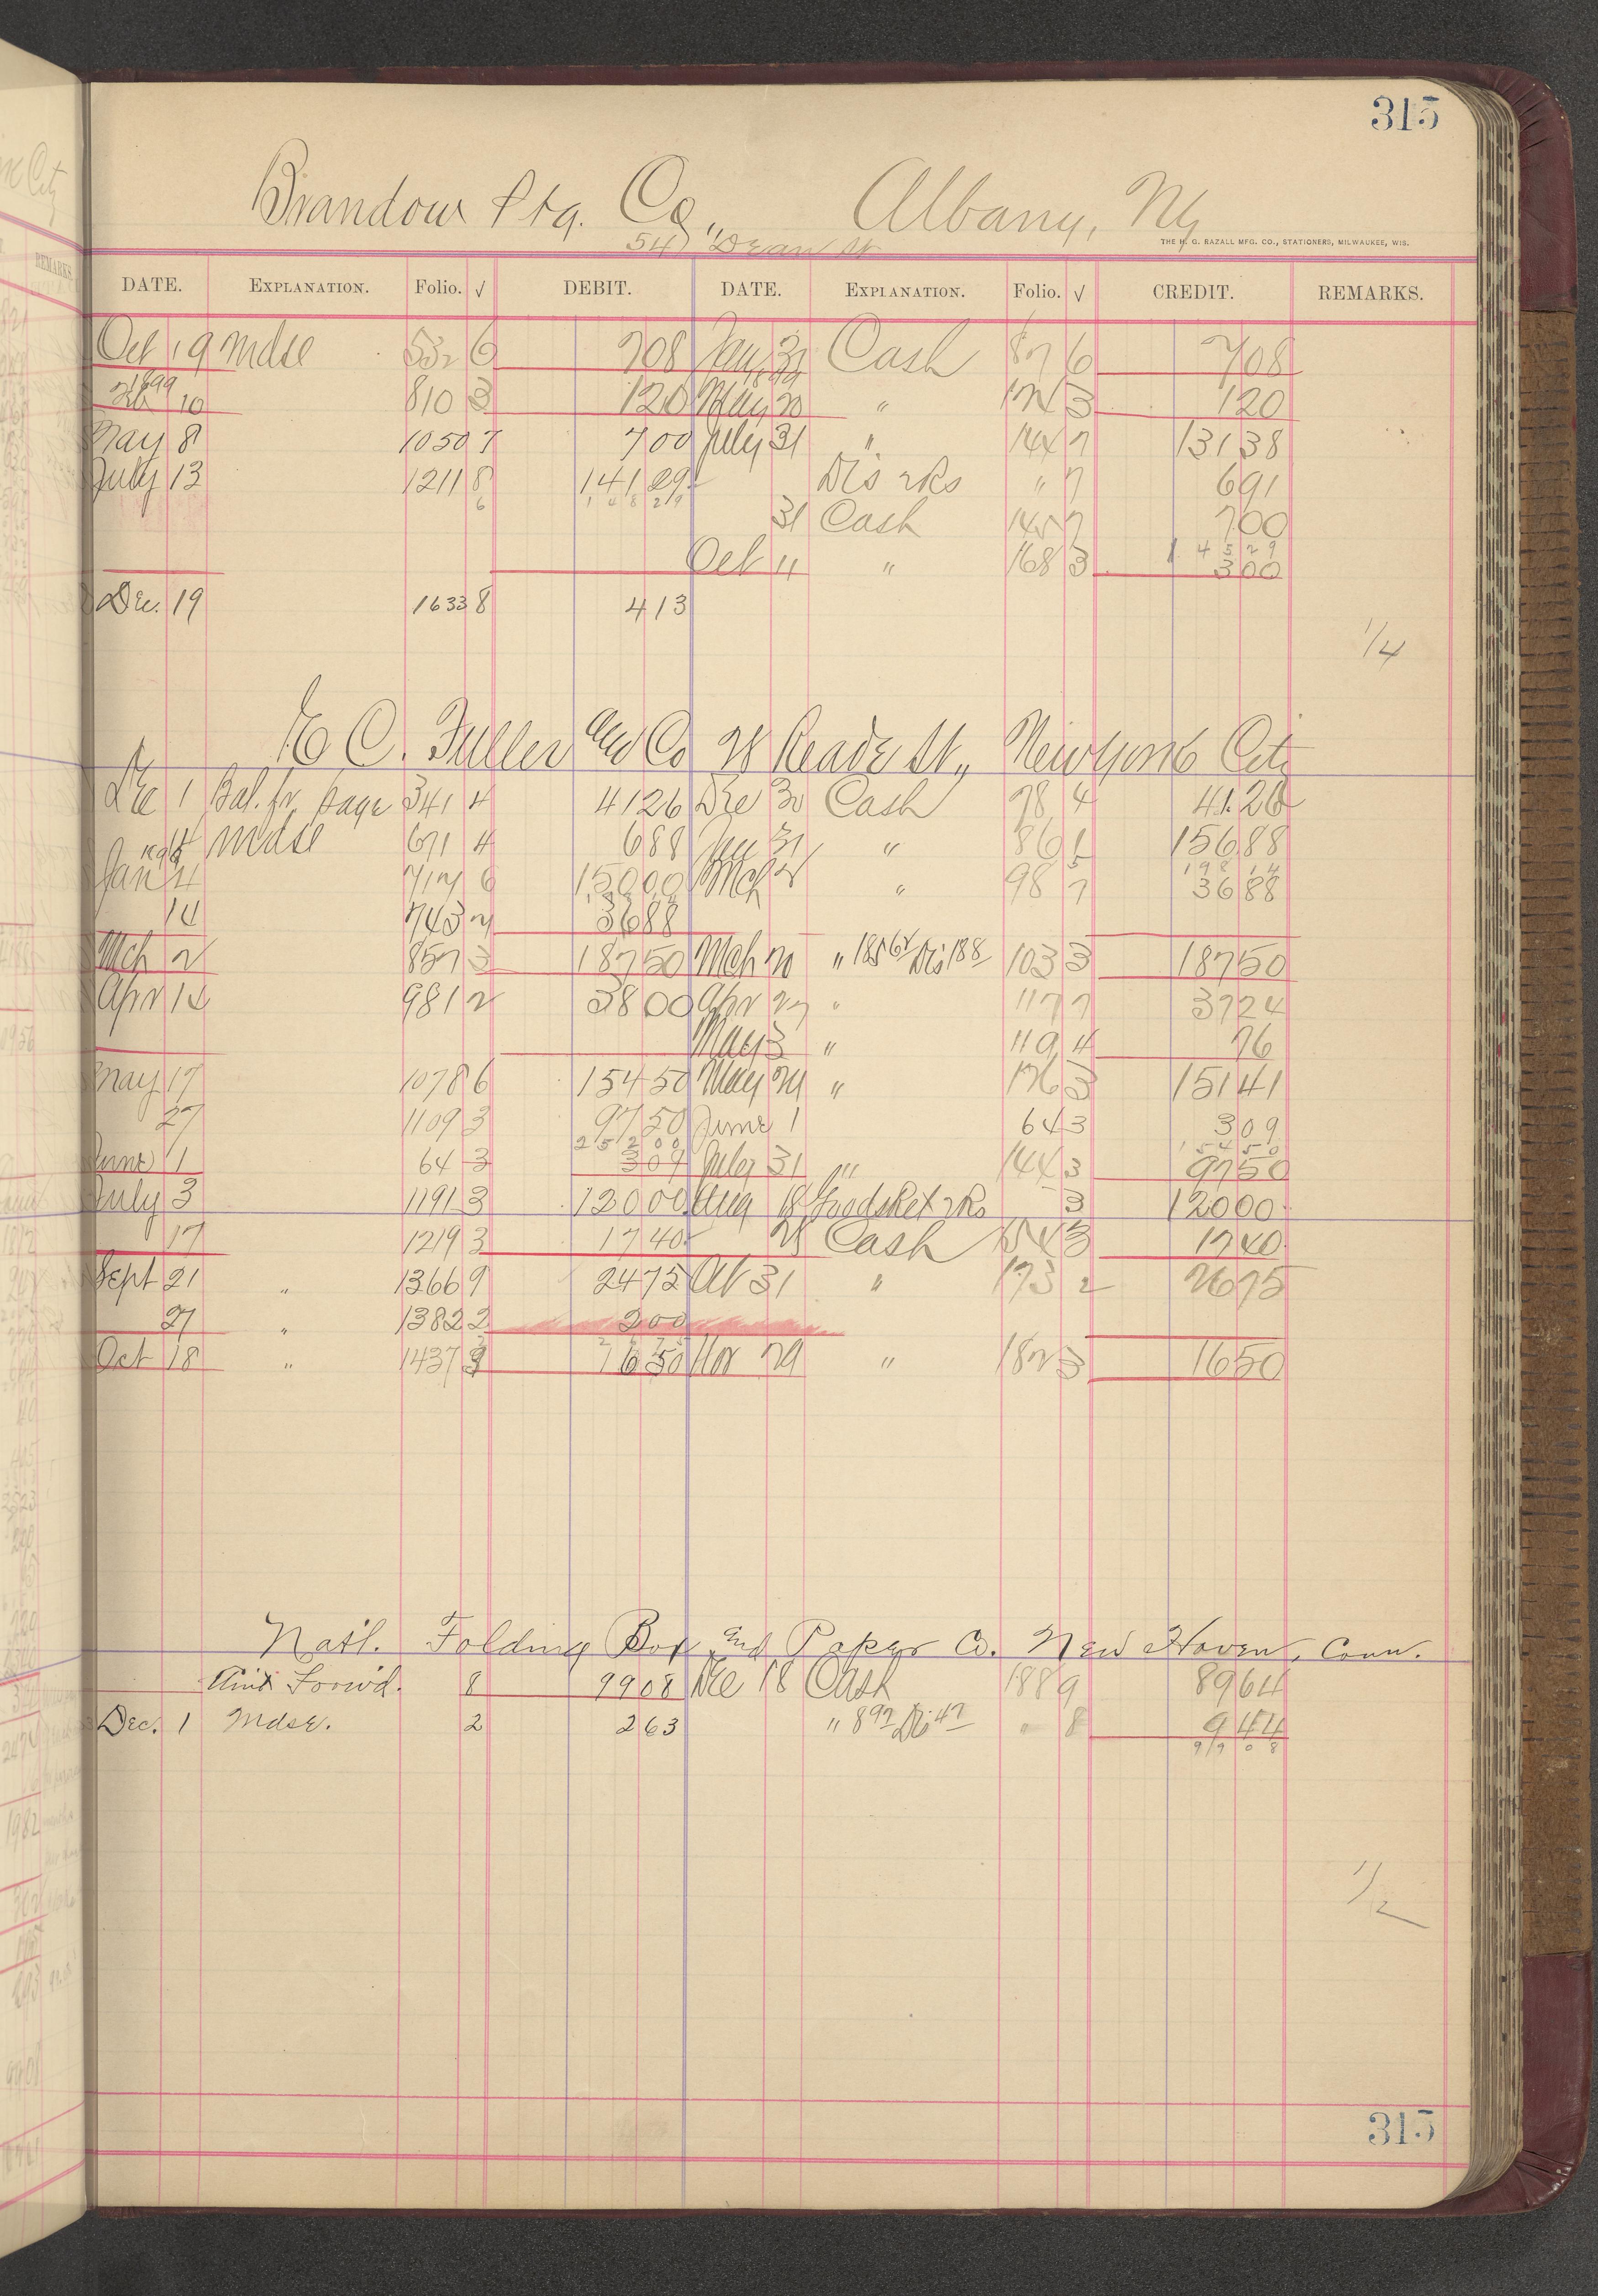 315
Brandow Ptg. Co., Albany, Ny
54 Dean St
THE H. G. RAZALL MFG. CO., STATIONERS, MILWAUKEE, WIS.
DATE. EXPLANATION. Folio. √ DEBIT. DATE. EXPLANATION. Folio. √ CREDIT. REMARKS.
Oct 19 mdse 532 6 708 Jany 31 Cash 87 6 708
1899 99
Feb 10 810 3 120 May 20 " 3 120
May 8 1050 7 700 July 31 " 144 7 131 38
July 13 1211 8 141 29 Dis 2Ks " 7 691
6 1 4 8 2 9
31 Cash 145 7 700
1 4 5 2 9
Oct 11 " 168 3 300
Dec. 19 1633 8 413
1/4
E C. Fuller and Co 28 Reade St., New York City
Dec 1 Bal. fr. page 341 4 41 26 Dec 30 Cash 78 4 41.26
mdse 671 4 688 Jan 31 " 86 156 88
Jan 4 717 6 150 00 Mch " 98 7 36 88
14 743 2 36 88
Mch 2 857 3 187 50 Mch 20 " 185 62 Dis 188 103 3 187 50
Apr 14 981 2 38 00 Apr 27 " 117 7 37 24
May 3 " 119 4 76
May 17 1078 6 154 50 May 29 " 126 3 151 41
27 1109 3 97 50 June 1 64 3 3 09
2 5 2 0 0 1 5 4 5 0
June 1 64 3 3 09 July 31 " 144 3 97 50
July 3 1191 3 120 00 Aug 18 Goods Ret 2Ks 3 120 00
17 1219 3 17 40 28 Cash 154 3 17 40
Sept 21 " 1366 9 24 75 Oct 31 " 173 2 26 75
27 " 1382 2 2 00
Oct 18 " 1437 3 16 50 Nov 29 " 182 3 16 50
Nat'l. Folding Box and Paper Co. New Haven, Conn.
Amt Forw'd. 8 99 08 Dec 18 Cash 188 9 89 64
Dec. 1 Mdse. 2 2 63 " 8 97 Dis 47 " 8 9 44
9 9 0 8
1/2
315